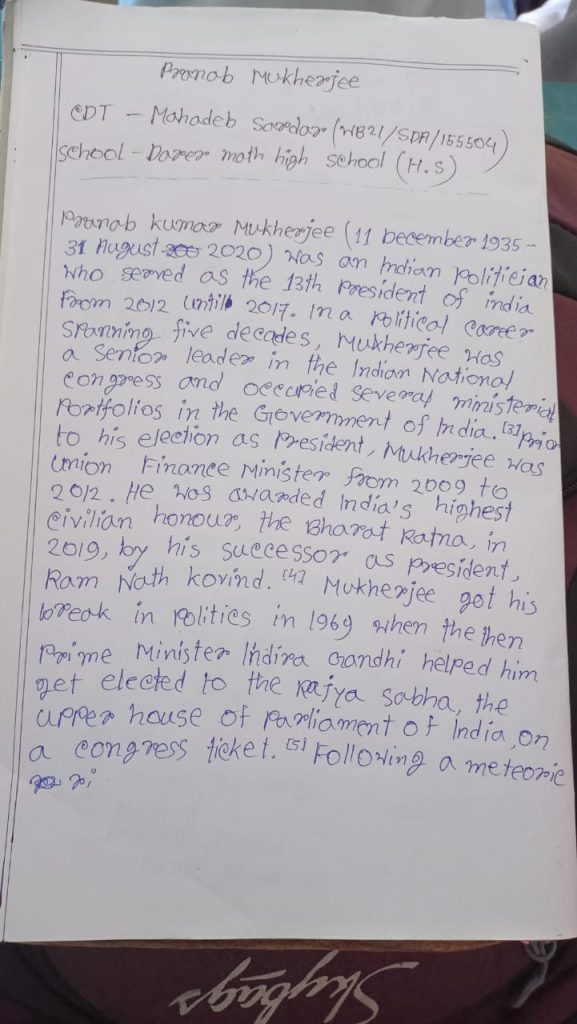 Pranab Mukherjee
CDT - Mahadeb Sardar (WB21/SDA/155504)
School - Darer math high school (H.S)
Pranab kumar Mukherjee (11 December 1935 -
31 August 2020) was an Indian politician
who served as the 13th President of india
from 2012 until 2017. In a political career
spanning five decades, Mukherjee was
a senior leader in the Indian National
congress and occupied several ministerial
Portfolios in the Government of India. [3] Prior
to his election as President, Mukherjee was
Union Finance Minister from 2009 to
2012. He was awarded India's highest
civilian honour, the Bharat Ratna, in
2019, by his successor as president,
Ram Nath kovind. [4] Mukherjee got his
break in politics in 1969 when the then
Prime Minister Indira Gandhi helped him
get elected to the Rajya sabha, the
upper house of parliament of India, on
a congress ticket. [5] Following a meteoric
ri
Skybags